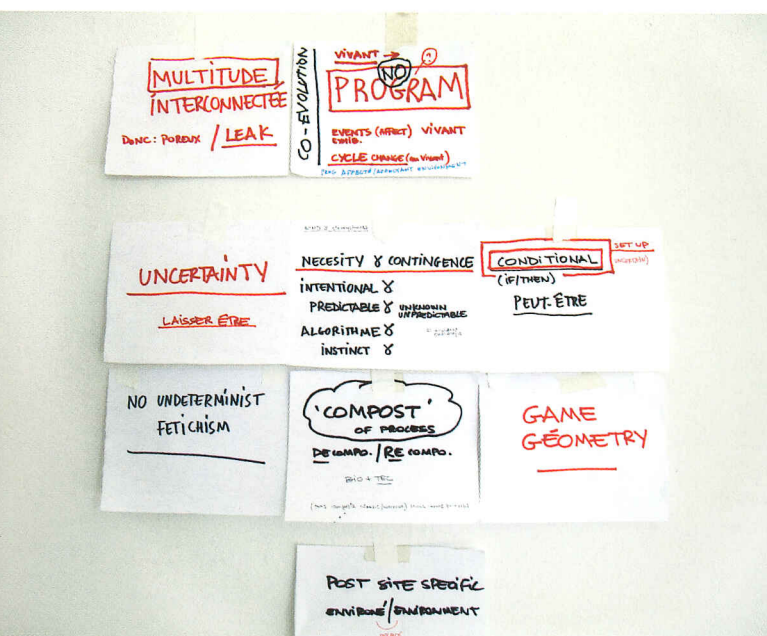 MULTITUDE
INTERCONNECTÉE
DONC: POREUX / LEAK
CO-EVOLUTION
VIVANT → ?
NO
PROGRAM
EVENTS (AFFECT) VIVANT
EXHIB.
CYCLE CHANGE (au vivant)
UNCERTAINTY
LAISSER ÊTRE
NECESITY & CONTINGENCE
INTENTIONAL &
PREDICTABLE & UNKNOWN
UNPREDICTABLE
ALGORITHME &
INSTINCT &
CONDITIONAL
SET UP
(IF/THEN)
PEUT-ÊTRE
NO UNDETERMINIST
FETICHISM
'COMPOST'
OF PROCESS
DECOMPO. / RE COMPO.
BIO + TEC
GAME
GÉOMETRY
POST SITE SPECIFIC
ENVIRONÉ / ENVIRONMENT